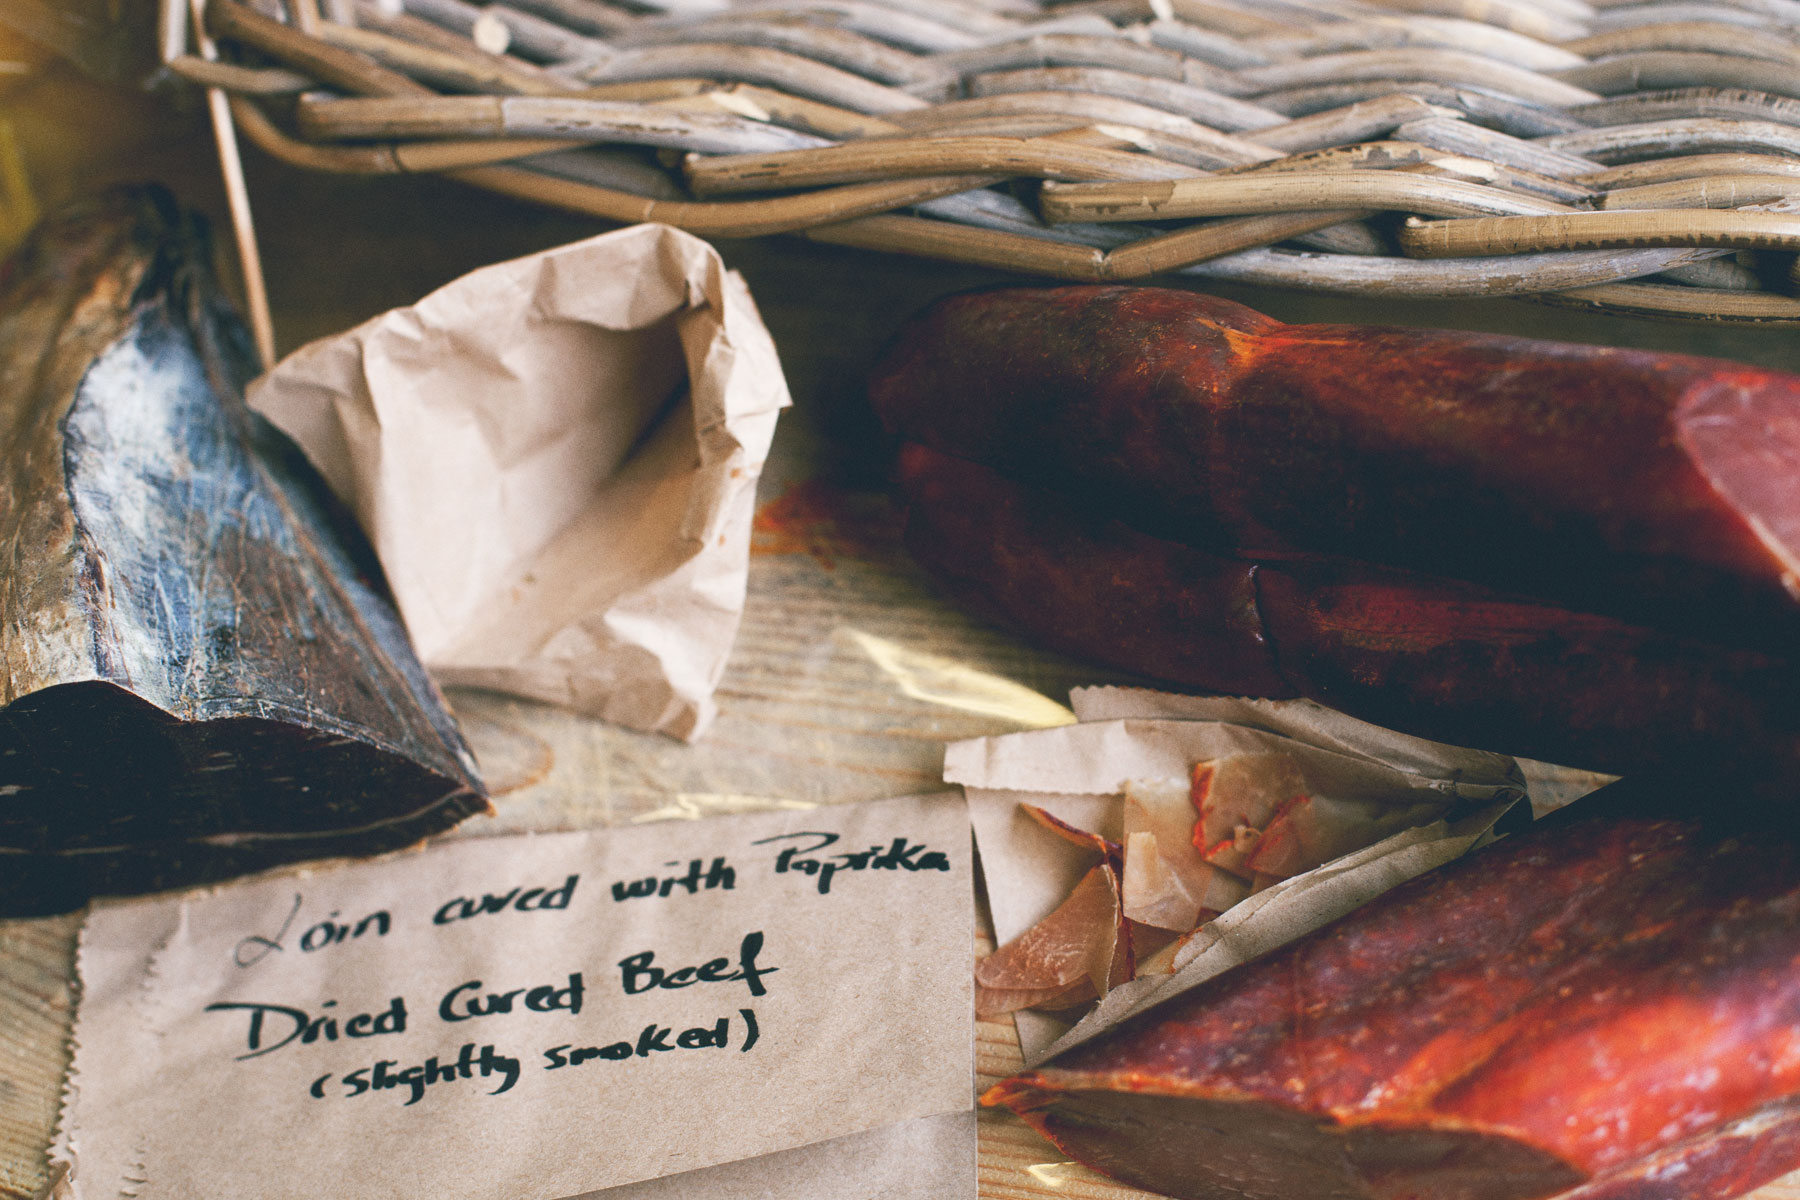 Loin cured with Paprika
Dried Cured Beef
(slightly smoked)